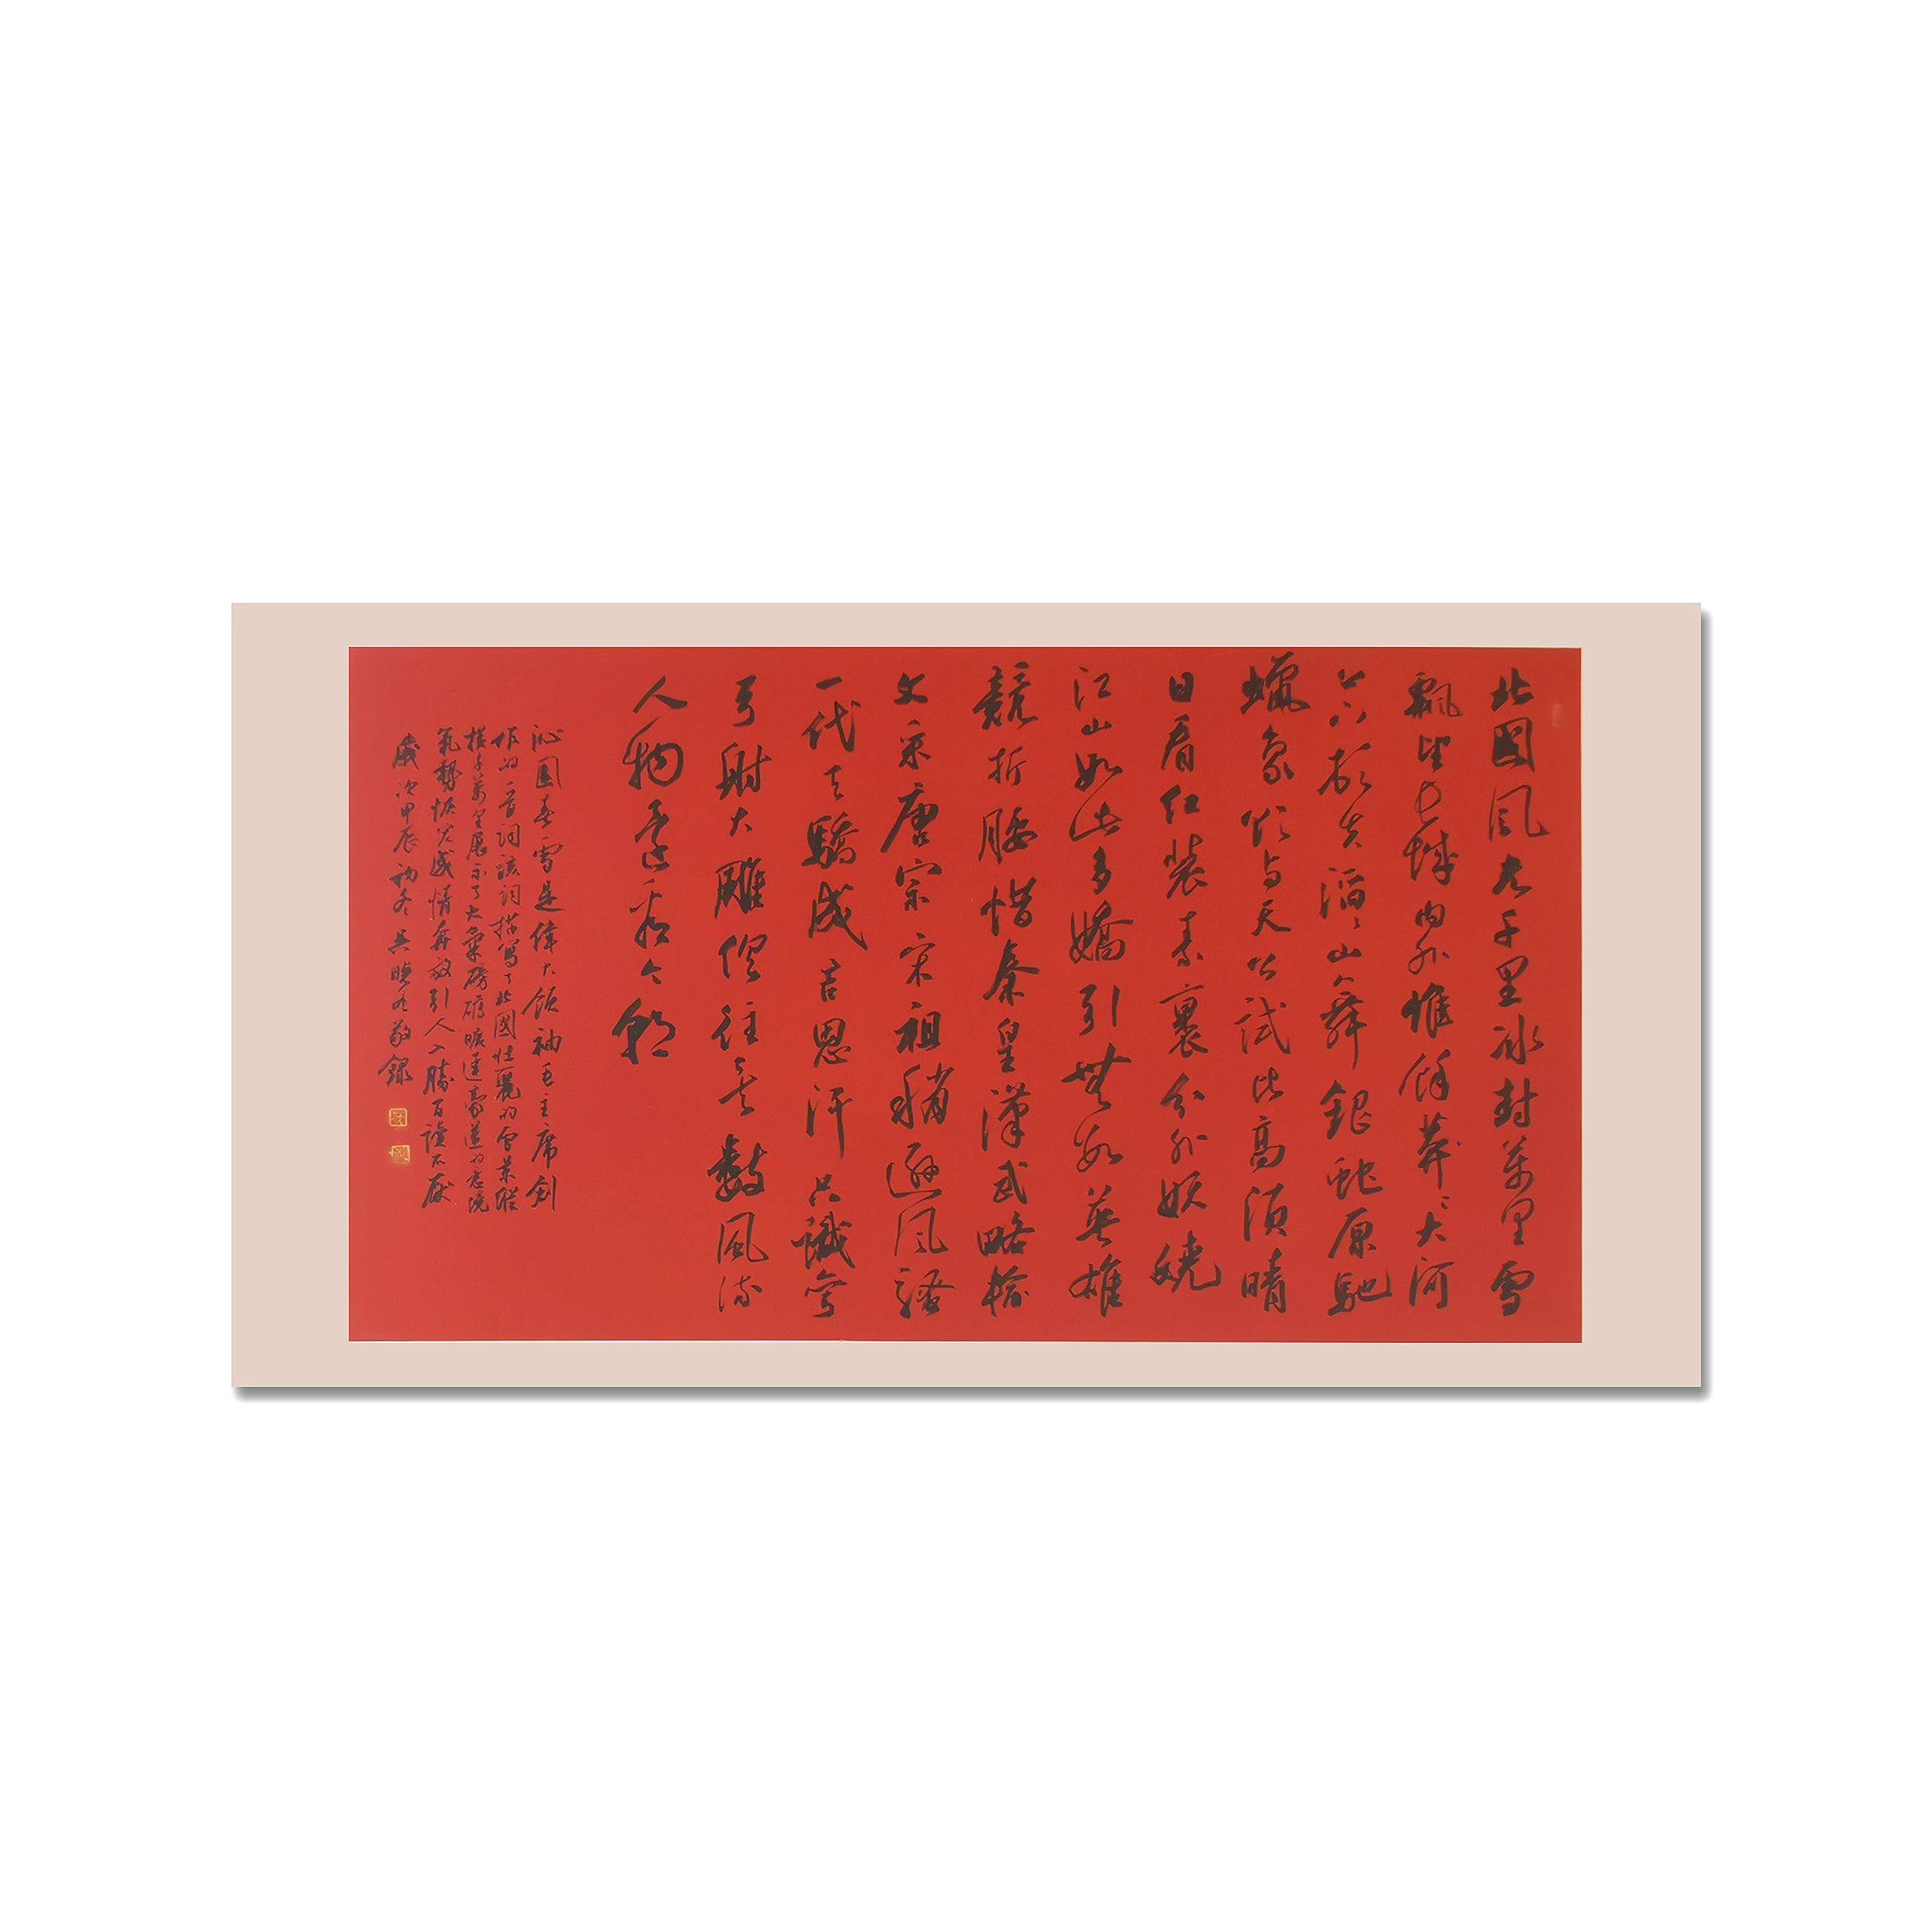 北國風光千里冰封萬里雪
飄望長城內外惟餘莽々大河
上下頓失滔々山舞銀蛇原馳
蠟象欲与天公試比高須晴
日看紅裝素裹分外妖嬈
江山如此多嬌引無數英雄
競折腰惜秦皇漢武略輸
文采唐宗宋祖稍遜風騷
一代天驕成吉思汗只識彎
弓射大雕俱往矣數風流
人物還看今朝
沁園春雪是偉大領袖毛主席創
作的一首詞該詞描寫了北國壯麗的雪景縱
橫千萬里展示了大氣磅礴曠達豪邁的意境
氣勢恢宏感情奔放引人入勝百讀不厭
歲次甲辰初冬敬錄